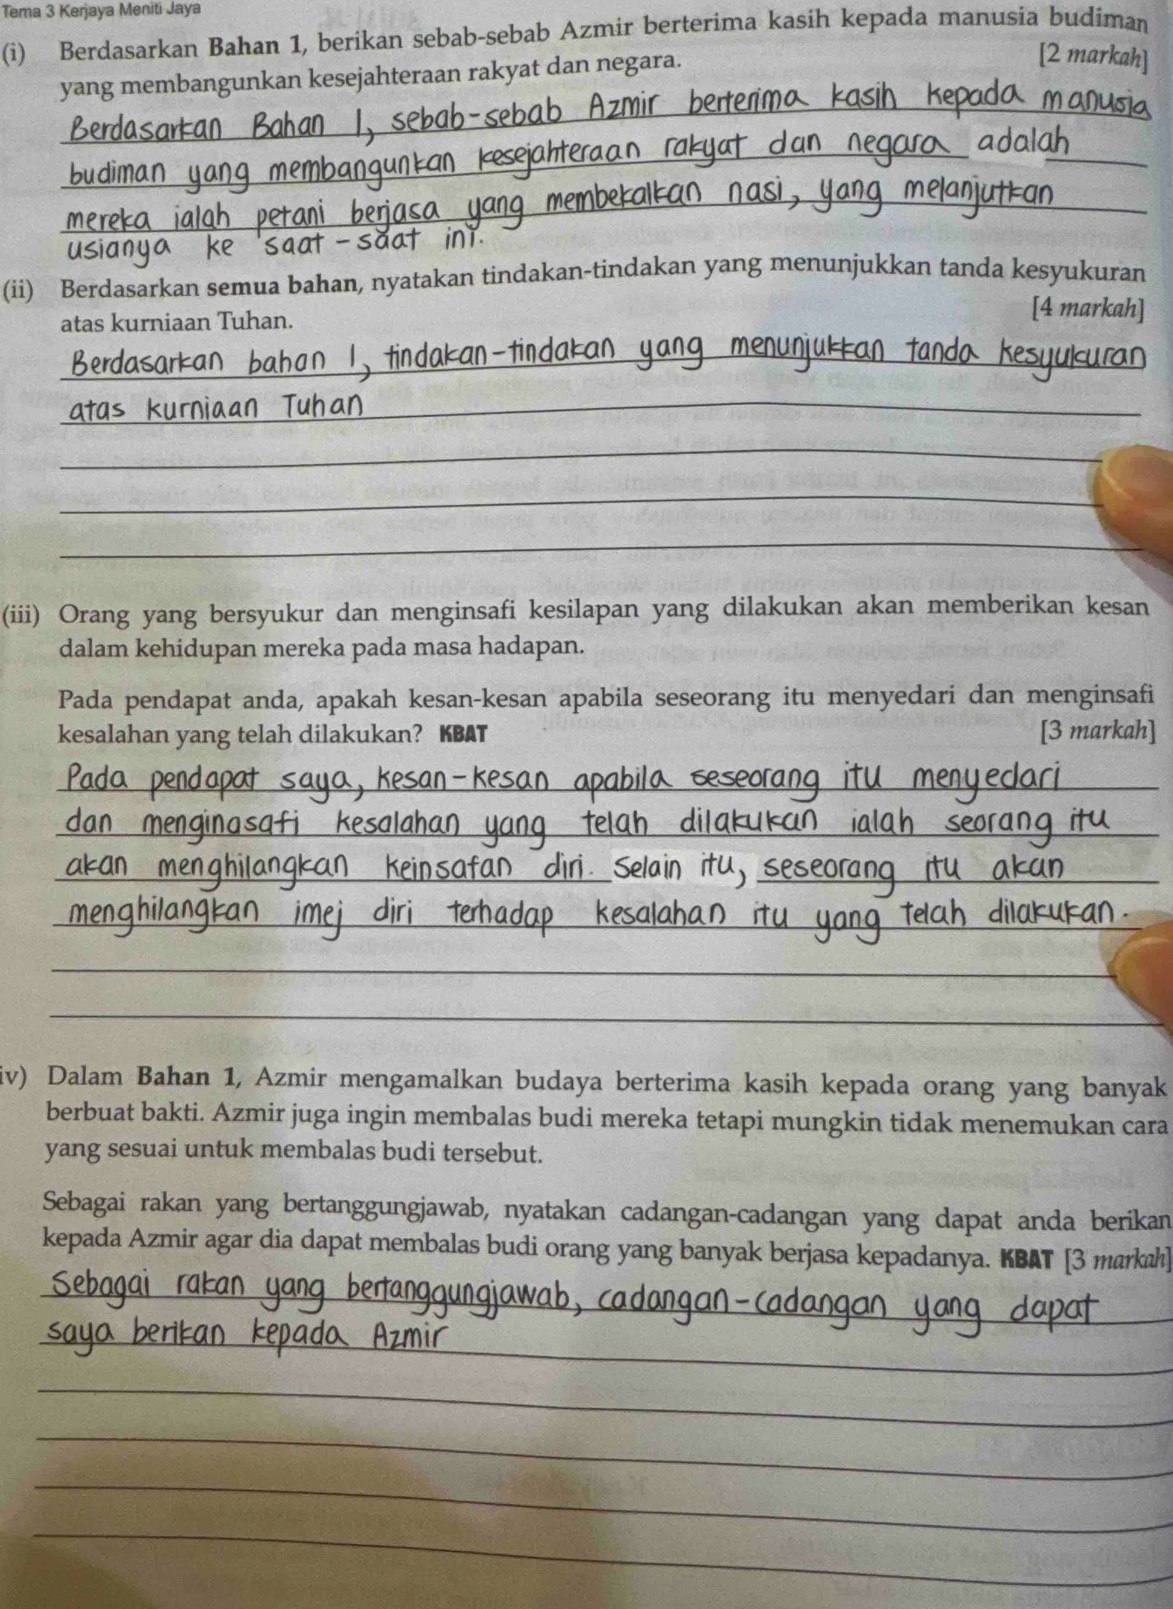 Tema 3 Kerjaya Meniti Jaya
(i) Berdasarkan Bahan 1, berikan sebab-sebab Azmir berterima kasih kepada manusia budiman
yang membangunkan kesejahteraan rakyat dan negara. [2 markah]
Berdasarkan Bahan 1, sebab-sebab Azmir berterima kasih kepada manusia
budiman yang membangunkan kesejahteraan rakyat dan negara adalah
mereka ialah petani berjasa yang membekalkan nasi, yang melanjutkan
usianya ke saat-saat ini.
(ii) Berdasarkan semua bahan, nyatakan tindakan-tindakan yang menunjukkan tanda kesyukuran
atas kurniaan Tuhan. [4 markah]
Berdasarkan bahan 1, tindakan-tindakan yang menunjukkan tanda kesyukuran
atas kurniaan Tuhan
(iii) Orang yang bersyukur dan menginsafi kesilapan yang dilakukan akan memberikan kesan
dalam kehidupan mereka pada masa hadapan.
Pada pendapat anda, apakah kesan-kesan apabila seseorang itu menyedari dan menginsafi
kesalahan yang telah dilakukan? KBAT [3 markah]
Pada pendapat saya, kesan-kesan apabila seseorang itu menyedari
dan menginasafi kesalahan yang telah dilakukan ialah seorang itu
akan menghilangkan keinsafan diri. Selain itu, seseorang itu akan
menghilangkan imej diri terhadap kesalahan itu yang telah dilakukan.
iv) Dalam Bahan 1, Azmir mengamalkan budaya berterima kasih kepada orang yang banyak
berbuat bakti. Azmir juga ingin membalas budi mereka tetapi mungkin tidak menemukan cara
yang sesuai untuk membalas budi tersebut.
Sebagai rakan yang bertanggungjawab, nyatakan cadangan-cadangan yang dapat anda berikan
kepada Azmir agar dia dapat membalas budi orang yang banyak berjasa kepadanya. KBAT [3 markah]
Sebagai rakan yang bertanggungjawab, cadangan-cadangan yang dapat
saya berikan kepada Azmir